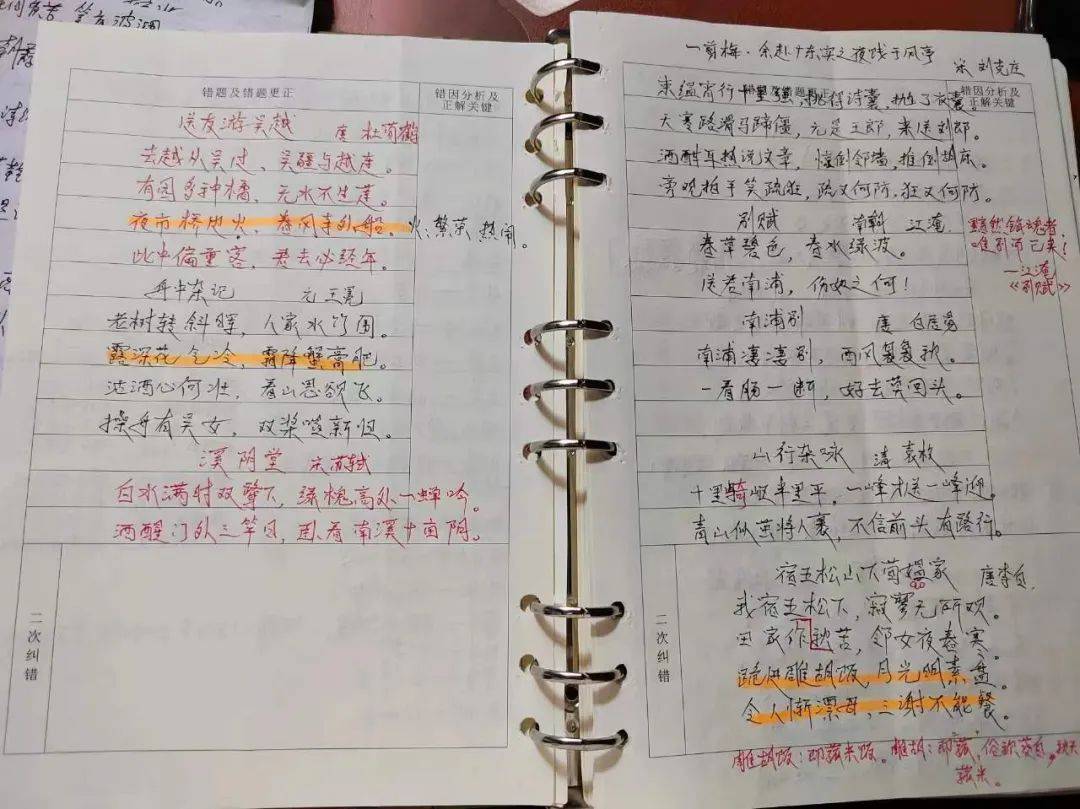 错题及错题更正
错因分析及
正解关键
送友游吴越 唐 杜荀鹤
去越从吴过、吴疆与越连。
有园多种橘、无水不生莲。
夜市桥边火、春风寺外船。火:繁荣、热闹。
此中偏重客、君去必经年。
舟中杂记 元 王冕
老树转斜晖,人家水竹围。
露深花气冷,霜降蟹膏肥。
沽酒心何壮,看山思欲飞。
操舟有吴女,双桨唱新归。
溪阴堂 宋 苏轼
白水满时双鹭下,绿槐高处一蝉吟。
酒醒门外三竿日,卧看南溪十亩阴。
二次纠错
一剪梅·余赴广东实之夜饯于风亭
宋 刘克庄
错因分析及
正解关键
束缊宵行十里强,挑得诗囊,抛了衣囊。
天寒路滑马蹄僵,元是王郎,来送刘郎。
酒酣耳热说文章,惊倒邻墙,推倒胡床。
旁观拍手笑疏狂,疏又何防,狂又何防。
别赋 南朝 江淹
春草碧色,春水绿波。
送君南浦,伤如之何!
黯然销魂者
唯别而已矣!
—江淹
《别赋》
南浦别 唐 白居易
南浦凄凄别,西风袅袅秋。
一看肠一断,好去莫回头。
山行杂咏 清 袁枚
十里崎岖半里平,一峰才送一峰迎。
青山似茧将人裹,不信前头有路行。
宿五松山下荀媪家 唐李白
我宿五松下,寂寥无所欢。
田家作秋苦,邻女夜舂寒。
跪进雕胡饭,月光明素盘。
令人惭漂母,三谢不能餐。
二次纠错
雕胡饭:即菰米饭。雕胡:即菰,俗称茭白,秋天
菰米。